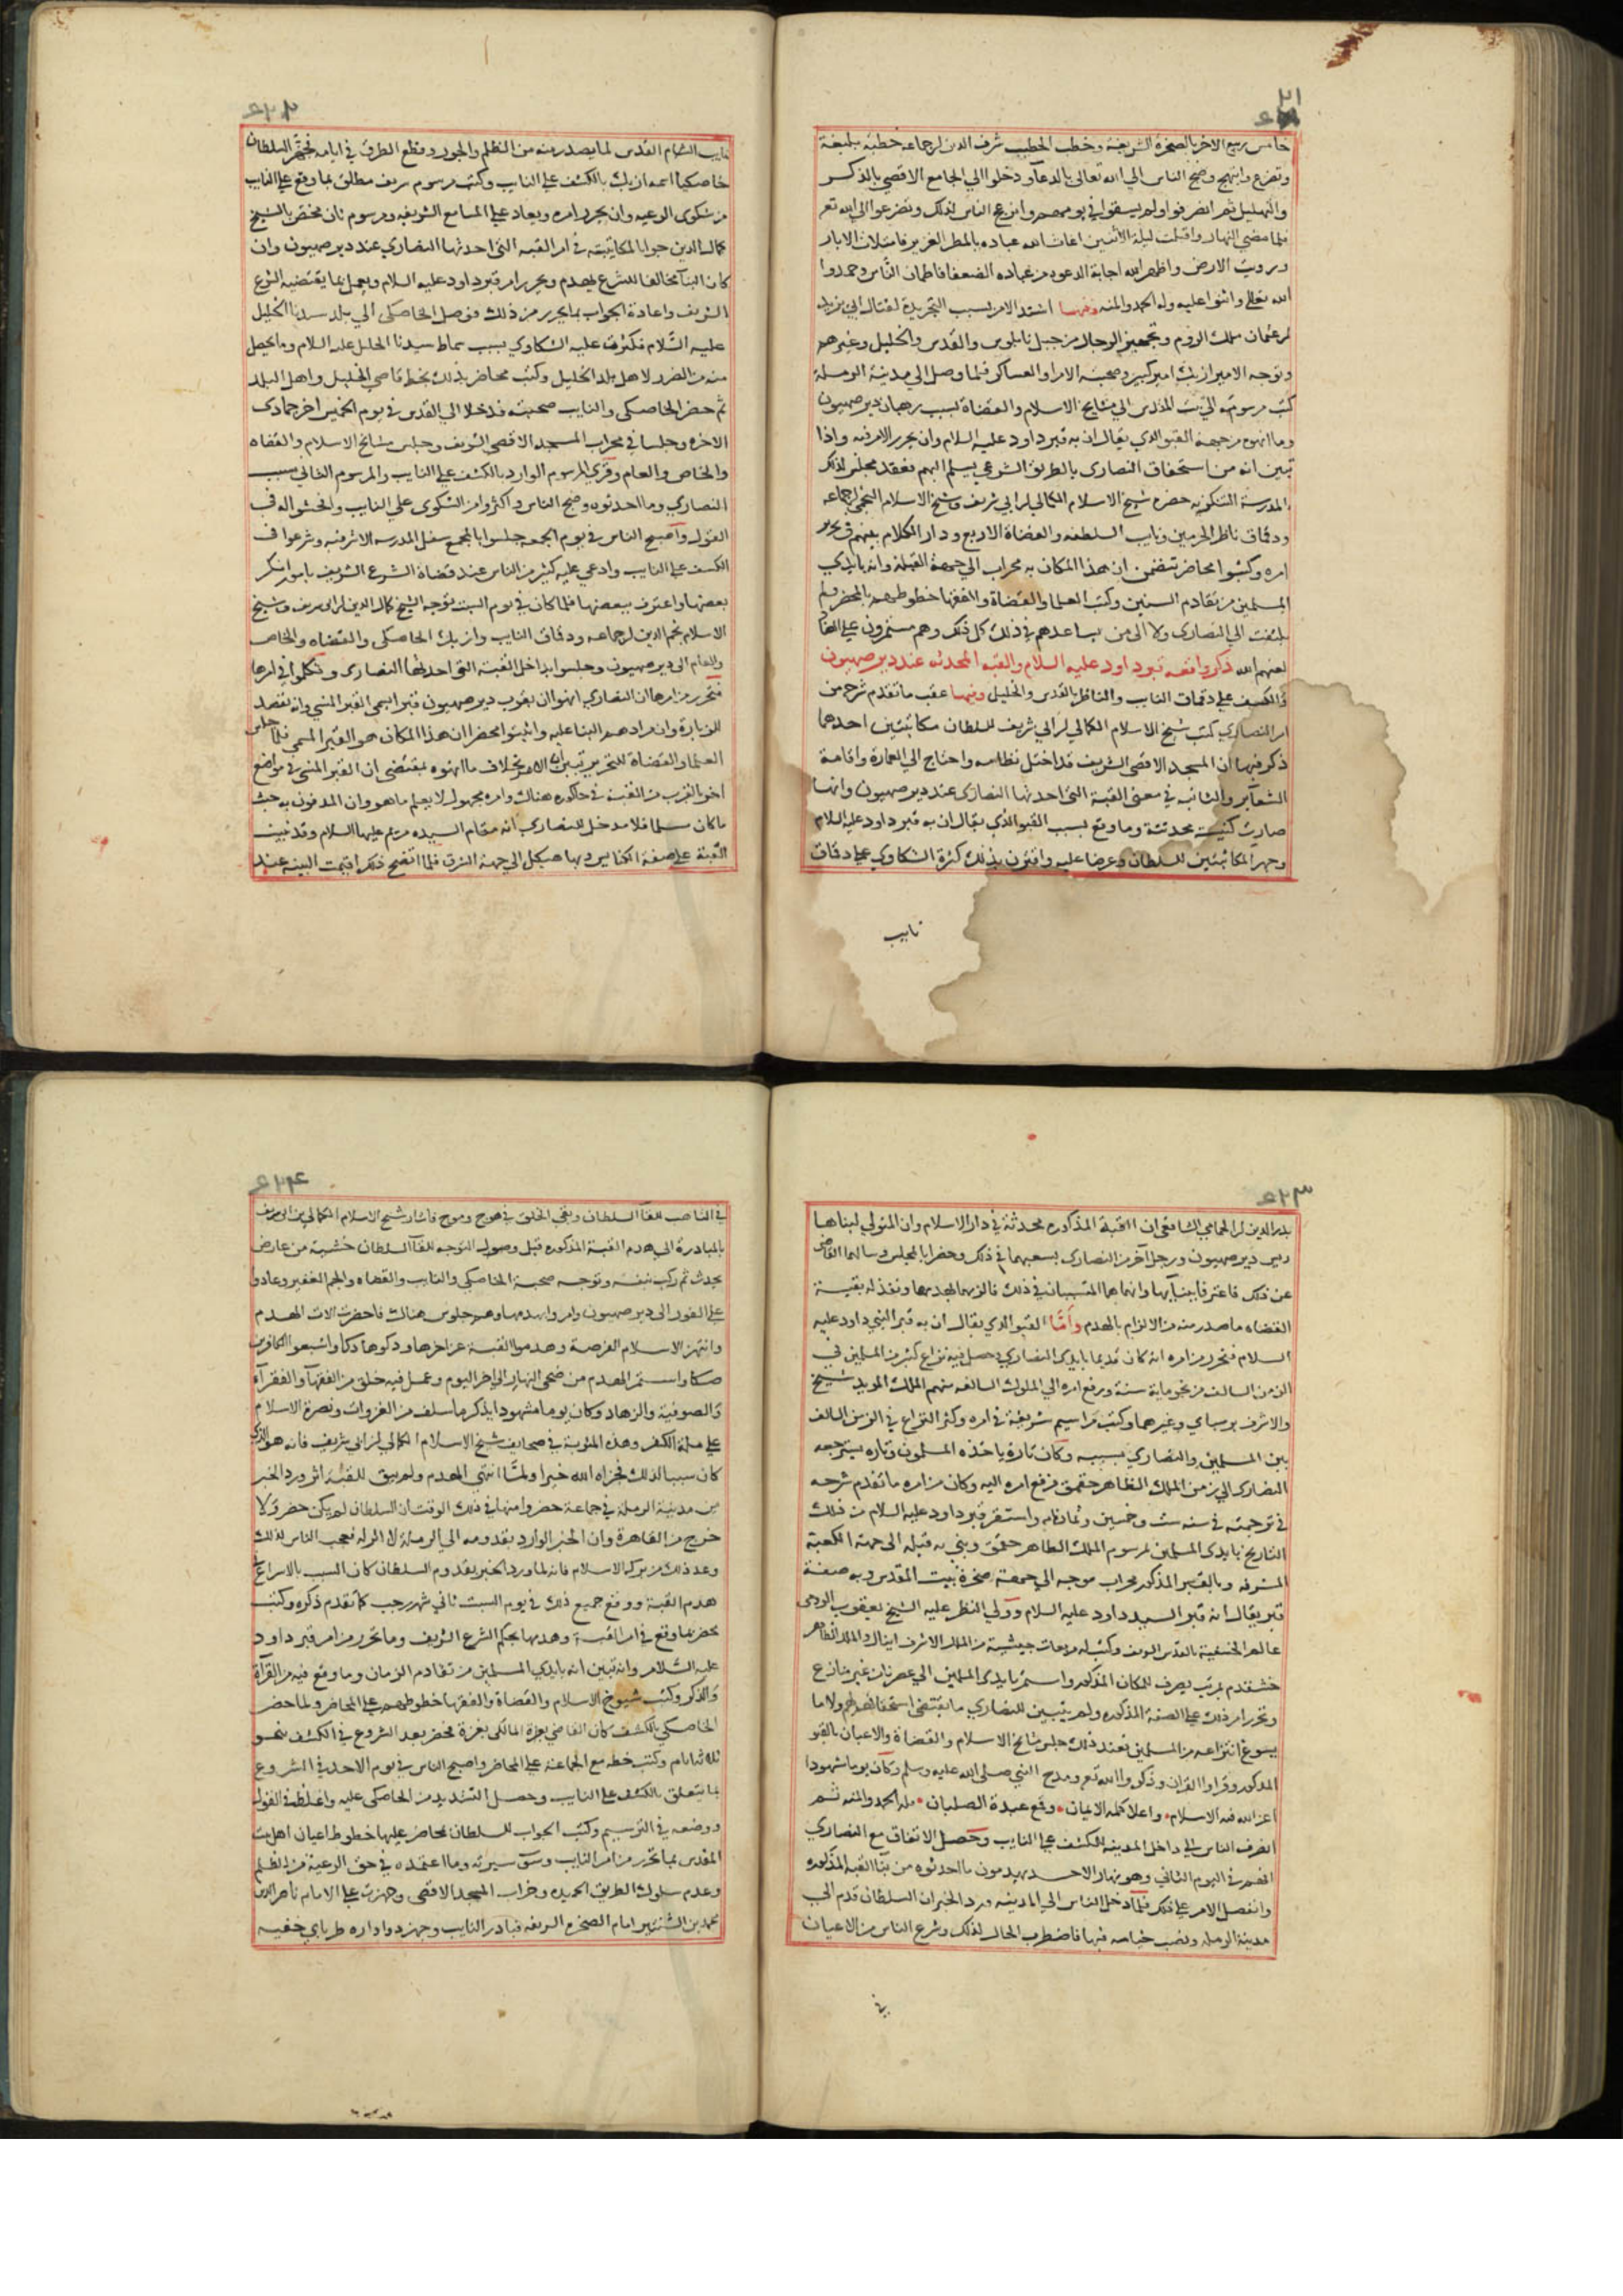 خامس ربيع الاخر بالصخرة الشريفة وخطب الخطيب شرف الدين بن جماعه خطبة بليغة
وتضرع وابتهج وضج الناس الى الله تعالى بالدعآ ودخلوا الي الجامع الاقصي بالذكر
والتهليل ثم انصرفوا ولم يسقوا في يومهم وانزعج الناس لذلك وتضرعوا الي الله تع
فلما مضي النهار واقبلت ليلة الاثنين اغاث الله عباده بالمطر الغزير فامتلات الابار
ورويت الارض واظهر الله اجابة الدعوه من عباده الضعفا فاطمان الناس وحمدوا
الله تعالى واثنوا عليه وله الحمد والمنه ومنها اشتد الامر بسبب التجريدة لقتال ابي يزيد
بن عثمان ملك الروم وتجهيز الرجال من جبل نابلوس والقدس والخليل وغيرهم
وتوجه الامير ازبك امير كبير وصحبته الامرا والعساكر فلما وصل الي مدينة الرملة
كتب مرسومه الي بيت المقدس الي مشايخ الاسلام والقضاة بسبب رهبان دير صهيون
وما انهوه من جهة القبو الذي يقال ان به قبر داود عليه السلام وان يحرر الامر فيه واذا
تبين انه من استحقاق النصارى بالطريق الشرعي يسلم اليهم فعقد مجلس لذلك
بالمدرسة التنكزيه حضره شيخ الاسلام الكمالي بن ابي شريف وشيخ الاسلام النجمي بن جماعه
ودقماق ناظر الحرمين ونايب السلطنه والقضاة الاربع ودار الكلام بينهم في تحرير
امره وكتبوا محاضر تتضمن ان هذا المكان به محراب الي جهة القبلة وانه بايدي
المسلمين من تقادم السنين وكتب العلما والقضاة والفقها خطوطهم بالمحضر ولم
يلتفت الي النصارى ولا الى من يساعدهم في ذلك كل ذلك وهم مستمرون علي
لعنهم الله ذكر واقعه قبر داود عليه السلام والقبه المحدثه عند دير صهيون
والكشف علي دقماق النايب والناظر بالقدس والخليل ومنها عقب ما تقدم شرحه من
امر النصارى كتب شيخ الاسلام الكمالي بن ابي شريف للسلطان مكاتبتين احدهما
ذكر فيها ان المسجد الاقصى الشريف قد اختل نظامه واحتاج الي العمارة واقامة
الشعآير والثانيه في معنى القبة التى احدثها النصارى عند دير صهيون وانها
صارت كنيسة محدثة وما وقع بسبب القبو الذي يقال ان به قبر داود عليه السلام
وجهز المكاتبتين للسلطان وعرضا عليه واقترن بذلك كثرة الشكاوى علي دقماق
نايب
نايب الشام القدس لما يصدر منه من الظلم والجور وقطع الطرق في ايامه فجهز السلطان
خاصكيا اسمه ازبك بالكشف علي النايب وكتب مرسوم شريف مطلق بما وقع علي النايب
من شكوى الرعيه وان يحرر امره ويعاد علي المسامع الشريفه ومرسوم ثان مختص بالشيخ
كمال الدين جوابا لمكاتبته في امر القبه التى احدثها النصارى عند دير صهيون وان
كان البنآ مخالفا للشرع يهدم ويحرر امر قبر داود عليه السلام ويعمل بما يقتضيه الشرع
الشريف واعادة الجواب بما يحرر من ذلك فوصل الخاصكى الي بلد سيدنا الخليل
عليه السلام فكثرت عليه الشكاوي بسبب سماط سيدنا الخليل عليه السلام وما يحصل
منه من الضرر لاهل بلد الخليل وكتب محاضر بذلك بخط قاضي الخليل واهل البلد
ثم حضر الخاصكى والنايب صحبته فدخلا الي القدس في يوم الخميس اخر جمادى
الاخره وجلسا في محراب المسجد الاقصي الشريف وجلس مشايخ الاسلام والقضاه
والخاص والعام وقرئ المرسوم الوارد بالكشف علي النايب والمرسوم الثاني بسبب
النصاري وما احدثوه وضج الناس واكثروا من الشكوى علي النايب وافحشوا له في
القول واصبح الناس في يوم الجمعه جلسوا بالمجمع سفل المدرسه الاشرفيه وشرعوا في
الكشف علي النايب وادعي عليه كثير من الناس عند قضاة الشرع الشريف بامور انكر
بعضها واعترف ببعضها فلما كان في يوم السبت توجه الشيخ كمال الدين بن ابي شريف وشيخ
الاسلام نجم الدين بن جماعه ودقماق النايب وازبك الخاصكى والقضاه والخاص
والعام الى دير صهيون وجلسوا بداخل القبة التى احدثها النصارى وتكلموا في امرها
فتحرر من امرها ان النصاري انهوا ان بقرب دير صهيون قبرا يسمى القبر المنسي وانه تقصد
للزيارة وان مرادهم البنا عليه واثبتوا محضرا ان هذا المكان هو القبر المسمى فلما جلس
العلما والقضاة للتحرير تبين ان الامر بخلاف ما انهوه بمقتضى ان القبر المنسي في مواضع
اخر بالقرب من القبة في حاكوره هناك وامره مجهول لا يعلم ما هو وان المدفون به حيث
ما كان مسلما فلا مدخل للنصارى انه مقام السيده مريم عليها السلام وقد بنيت
القبة على صفة الكنايس وبها هيكل الى جهة الشرق فلما اتضح ذلك اقيمت البينه عند
بدر الدين بن الحمامي الشافعي ان القبة المذكوره محدثة في دار الاسلام وان المتولي لبناها
ريس دير صهيون ورجل آخر من النصارى بسعيهما في ذلك وحضرا بالمجلس وسالهما القاضى
عن ذلك فاعترفا ببنآيها وانهما هما المتسببان في ذلك فالزمهما بهدمها ونفذ له بقية
القضاه ما صدر منه من الالزام بالهدم وامّا القبو الذي يقال ان به قبر النبي داود عليه
السلام فتحرر من امره انه كان قديما بايدى النصارى وحصل فيه نزاع كثير من المسلمين في
الزمن السالف من نحو ماية سنة ورفع امره الي الملوك السالفه منهم الملك المويد شيخ
والاشرف برسباي وغيرهما وكتب مراسيم شريفة في امره وكثر النزاع في الزمن السالف
بين المسلمين والنصارى بسببه وكان تارة ياخذه المسلمون وتاره يسترجعه
النصارى الي زمن الملك الظاهر جقمق فرفع امره اليه وكان من امره ما تقدم شرحه
في ترجمته في سنه ست وخمسين وثمانمايه واستقر قبر داود عليه السلام من ذلك
التاريخ بايدى المسلمين بمرسوم الملك الظاهر جقمق وبنى به قبله الى جهة الكعبة
المشرفه وبالقبر المذكور محراب موجه الي جهة صخرة بيت المقدس وبه صفة
قبر يقال انه قبر السيد داود عليه السلام وولي النظر عليه الشيخ يعقوب الرومى
عالم الحنفية بالقدس الشريف وكتب له مربعات جيشية من الملك الاشرف اينال والملك الظاهر
خشقدم بمرتب يصرف للمكان المذكور واستمر بايدى المسلمين الي عصرنا من غير منازع
وتحرر امر ذلك علي الصفة المذكوره ولم يتبين للنصاري ما يقتضى استحقاقهم ولا ما
يسوغ انتزاعه من المسلمين فعند ذلك جلس مشايخ الاسلام والقضاة والاعيان بالقبو
المذكور وقراوا القران وذكروا الله تع ومدح النبي صلى الله عليه وسلم وكان يوما مشهودا
اعز الله فيه الاسلام واعلا كلمة الايمان وقمع عبدة الصلبان فلله الحمد والمنه ثم
انصرف الناس الى داخل المدينه للكشف علي النايب وحصل الاتفاق مع النصاري
انهم في اليوم الثاني وهو نهار الاحد يهدمون ما احدثوه من بنا القبه المذكوره
وانفصل الامر على ذلك فلما دخل الناس الي المدينه ورد الخبر ان السلطان قدم الى
مدينة الرمله ونصب خيامه فيها فاضطرب الحال لذلك وشرع الناس من الاعيان
في
في التاهب للقآ السلطان وبقي الخلق في هرج ومرج فاشار شيخ الاسلام الكمالي بن ابي شريف
بالمبادرة الى هدم القبة المذكوره قبل وصول التوجه للقآ السلطان خشية من عارض
يحدث ثم ركب بنفسه وتوجه صحبة الخاصكى والنايب والقضاه والجم الغفير وعادوا
علي الفور الى دير صهيون وامروا بهدمها وهم جلوس هناك فاحضرت الات الهدم
وانتهز الاسلام الفرصة وهدموا القبة عن اخرها ودكوها دكا واشبعوا الكافرين
صكا واستمر الهدم من ضحى النهار الى اخر اليوم وعمل فيه خلق من الفقهآ والفقرآء
والصوفية والزهاد وكان يوما مشهودا يذكر ما سلف من الغزوات ونصرة الاسلام
علي ملة الكفر وهذه المثوبة في صحايف شيخ الاسلام الكمالي بن ابي شريف فانه هو الذى
كان سببا لذلك فجزاه الله خيرا ولمّا انتهى الهدم ولم يبق للقبة اثر ورد الخبر
من مدينة الرملة في جماعة حضروا منها في ذلك الوقت ان السلطان لم يكن حضر ولا
خرج من القاهرة وان الخبر الوارد بقدومه الي الرملة لا اصل له فعجب الناس لذلك
وعد ذلك من بركة الاسلام فانه لما ورد الخبر بقدوم السلطان كان السبب بالاسراع
هدم القبة ووقع جميع ذلك في يوم السبت ثاني شهر رجب كما تقدم ذكره وكتب
محضر بما وقع في امر القبة وهدمها بحكم الشرع الشريف وما تحرر من امر قبر داود
عليه السلام وانه تبين انه بايدي المسلمين من تقادم الزمان وما وقع فيه من القرآة
والذكر وكتب شيوخ الاسلام والقضاة والفقها خطوطهم علي المحاضر ولما حضر
الخاصكي بالكشف كان القاضي بغزة المالكى بغزة فحضر بعد الشروع في الكشف بنحو
ثلاثة ايام وكتب خطه مع الجماعة علي المحاضر واصبح الناس في يوم الاحد في الشروع
بما يتعلق بالكشف علي النايب وحصل التشديد من الخاصكى عليه واغلظ في القول
ووضعه في الترسيم وكتب الجواب للسلطان محاضر عليها خطوط اعيان اهل بيت
المقدس بما تحرر من امر النايب وسوء سيرته وما اعتمده في حق الرعية من الظلم
وعدم سلوك الطريق الحميده وخراب المسجد الاقصى وجهزت علي الامام ناصر الدين
محمد بن الشنتير امام الصخره الشريفه فبادر النايب وجهز دواداره طرباي خفيه